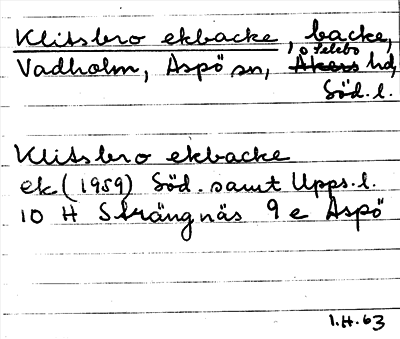 Klitsbro ekbacke, backe,
Vadholm, Aspö sn, Selebo hd,
Söd. l.
Klitsbro ekbacke
ek (1959) Söd. samt Upps. l.
10 H Strängnäs 9 e Aspö
1.H.63